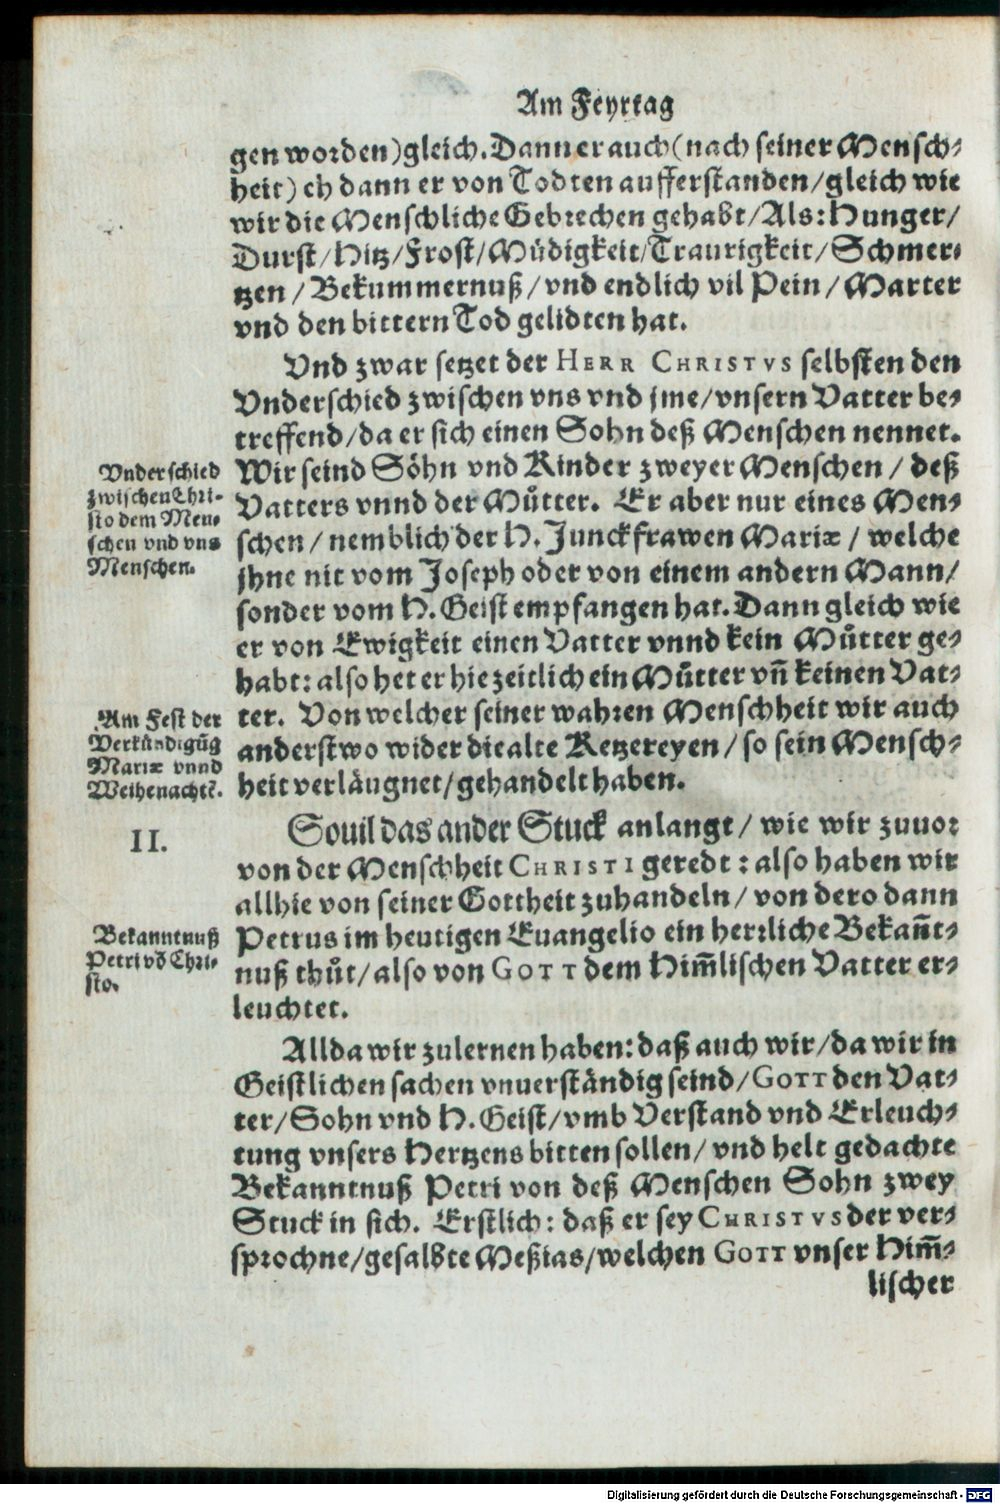 Am Feyrtag
gen worden) gleich. Dann er auch (nach seiner Mensch-
heit) eh dann er von Todten aufferstanden/gleich wie
wir die Menschliche Gebrechen gehabt/Als: Hunger/
Durst/Hitz/Frost/Müdigkeit/Traurigkeit/Schmer-
tzen/Bekummernuß/vnd endlich vil Pein/Marter
vnd den bittern Tod gelidten hat.
Vnd zwar setzet der HERR CHRISTVS selbsten den
Vnderschied zwischen vns vnd jme/vnsern Vatter be-
treffend/da er sich einen Sohn deß Menschen nennet.
Wir seind Söhn vnd Kinder zweyer Menschen/deß
Vatters vnnd der Můtter. Er aber nur eines Men-
schen/nemblich der H. Junckfrawen Mariæ/welche
jhne nit vom Joseph oder von einem andern Mann/
sonder vom H. Geist empfangen hat. Dann gleich wie
er von Ewigkeit einen Vatter vnnd kein Můtter ge-
habt: also het er hie zeitlich ein Můtter vñ keinen Vat-
ter. Von welcher seiner wahren Menschheit wir auch
anderstwo wider die alte Ketzereyen/so sein Mensch-
heit verläugnet/gehandelt haben.
Vnderschied
zwischen Chri-
sto dem Men-
schen vnd vns
Menschen.
Am Fest der
Verkündigũg
Mariæ vnnd
Weihenachtẽ.
II.
Souil das ander Stuck anlangt/wie wir zuuor
von der Menschheit CHRISTI geredt: also haben wir
allhie von seiner Gottheit zuhandeln/von dero dann
Petrus im heutigen Euangelio ein herrliche Bekañt-
nuß thůt/also von GOTT dem Him̃lischen Vatter er-
leuchtet.
Bekanntnuß
Petri võ Chri-
sto.
Allda wir zulernen haben: daß auch wir/da wir in
Geistlichen sachen vnuerständig seind/GOTT den Vat-
ter/Sohn vnd H. Geist/vmb Verstand vnd Erleuch-
tung vnsers Hertzens bitten sollen/vnd helt gedachte
Bekanntnuß Petri von deß Menschen Sohn zwey
Stuck in sich. Erstlich: daß er sey CHRISTVS der ver-
sprochne/gesalbte Meßias/welchen GOTT vnser Him̃-
lischer
Digitalisierung gefördert durch die Deutsche Forschungsgemeinschaft - DFG